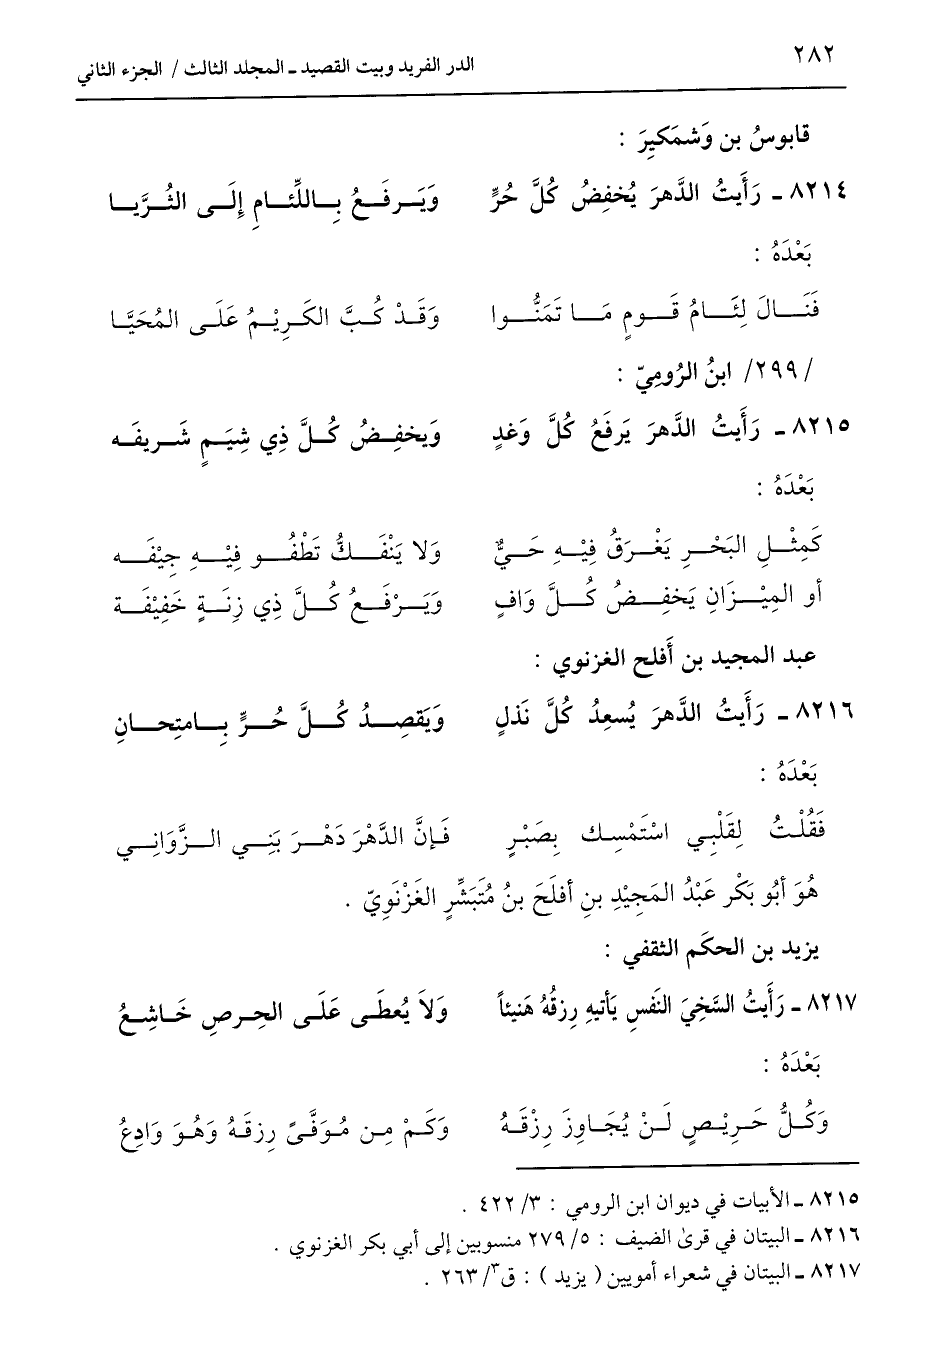 ٢٨٢
الدر الفريد وبيت القصيد ـ المجلد الثالث / الجزء الثاني
قابوسُ بن وَشمَكِيرَ :
٨٢١٤ ـ رَأَيتُ الدَّهرَ يُخفِضُ كُلَّ حُرٍّ وَيَرفَعُ بِاللِّئامِ إِلَى الثُرَيا
بَعْدَهُ :
فَنَالَ لِئَامُ قَومٍ مَا تَمَنُّوا وَقَدْ كُبَّ الكَرِيْمُ عَلَى المُحَيَّا
/٢٩٩/ ابنُ الرُومِيّ :
٨٢١٥ ـ رَأَيتُ الدَّهرَ يَرفَعُ كُلَّ وَغدٍ وَيخفِضُ كُلَّ ذِي شِيَمٍ شَريفَه
بَعْدَهُ :
كَمِثْلِ البَحْرِ يَغْرَقُ فِيْهِ حَيٌّ وَلا يَنْفَكُّ تَطْفُو فِيْهِ جِيْفَه
أو المِيْزَانِ يَخفِضُ كُلَّ وَافٍ وَيَرْفَعُ كُلَّ ذِي زِنَةٍ خَفِيْفَة
عبد المجيد بن أَفلح الغزنوي :
٨٢١٦ ـ رَأَيتُ الدَّهرَ يُسعِدُ كُلَّ نَذلٍ وَيَقصِدُ كُلَّ حُرٍّ بِامتِحانِ
بَعْدَهُ :
فَقُلْتُ لِقَلْبِي اسْتَمْسِك بِصَبْرٍ فَإِنَّ الدَّهْرَ دَهْرَ بَنِي الزَّوَانِي
هُوَ أَبُو بَكْر عَبْدُ المَجِيْدِ بنِ أفلَحَ بنُ مُتَبَشِّرٍ الغَزْنَوِيّ .
يزيد بن الحكَم الثقفي :
٨٢١٧ ـ رَأَيتُ السَّخِيَ النَفسِ يَأتيهِ رِزقُهُ هَنيئاً وَلاَ يُعطَى عَلَى الحِرصِ خَاشِعُ
بَعْدَهُ :
وَكُلُّ حَرِيْصٍ لَنْ يُجَاوِزَ رِزْقَهُ وَكَمْ مِن مُوَفَّىً رِزقَهُ وَهُوَ وَادِعُ
٨٢١٥ ـ الأبيات في ديوان ابن الرومي : ٣/ ٤٢٢ .
٨٢١٦ ـ البيتان في قرىٰ الضيف : ٥/ ٢٧٩ منسوبين إلى أبي بكر الغزنوي .
٨٢١٧ ـ البيتان في شعراء أمويين ( يزيد ) : ق٣/ ٢٦٣ .